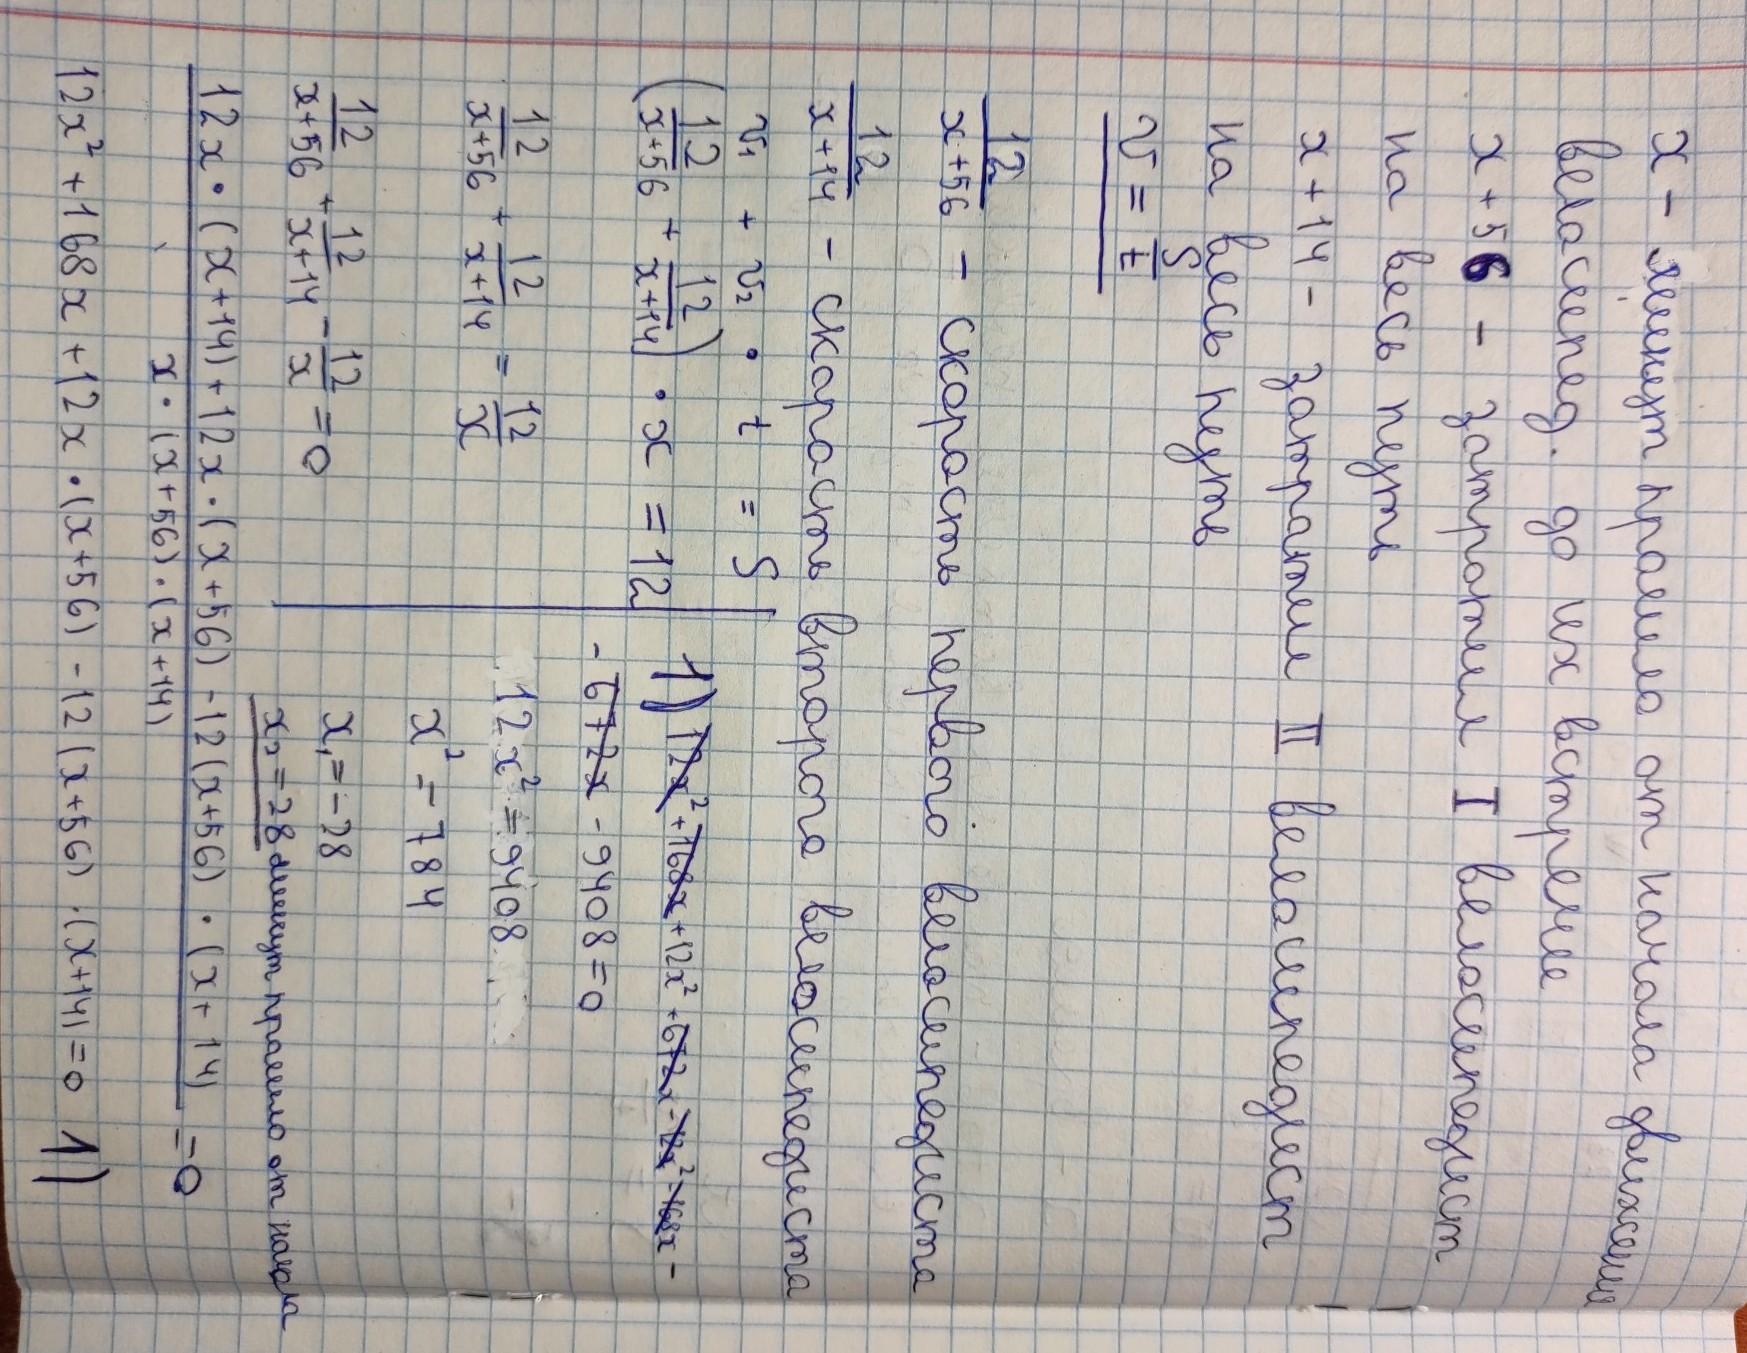 x – минут прошло от начала движения
веласипед. до их встречи
x + 56 – затратил I веласипедист
на весь путь
x + 14 – затратил II веласипедист
на весь путь
v = S/t
12/(x+56) – скорость первого веласипедиста
12/(x+14) – скорасть второго веласипедиста
v₁ + v₂ · t = S
(12/(x+56) + 12/(x+14)) · x = 12
12/(x+56) + 12/(x+14) = 12/x
12/(x+56) + 12/(x+14) – 12/x = 0
(12x · (x+14) + 12x · (x+56) – 12(x+56) · (x+14))/(x · (x+56) · (x+14)) = 0
12x² + 168x + 12x · (x+56) – 12(x+56) · (x+14) = 0 1)
1) 12x² + 168x + 12x² + 672x – 12x² – 168x –
– 672x – 9408 = 0
12x² = 9408
x² = 784
x₁ = – 28
x₂ = 28 минут прошло от начала